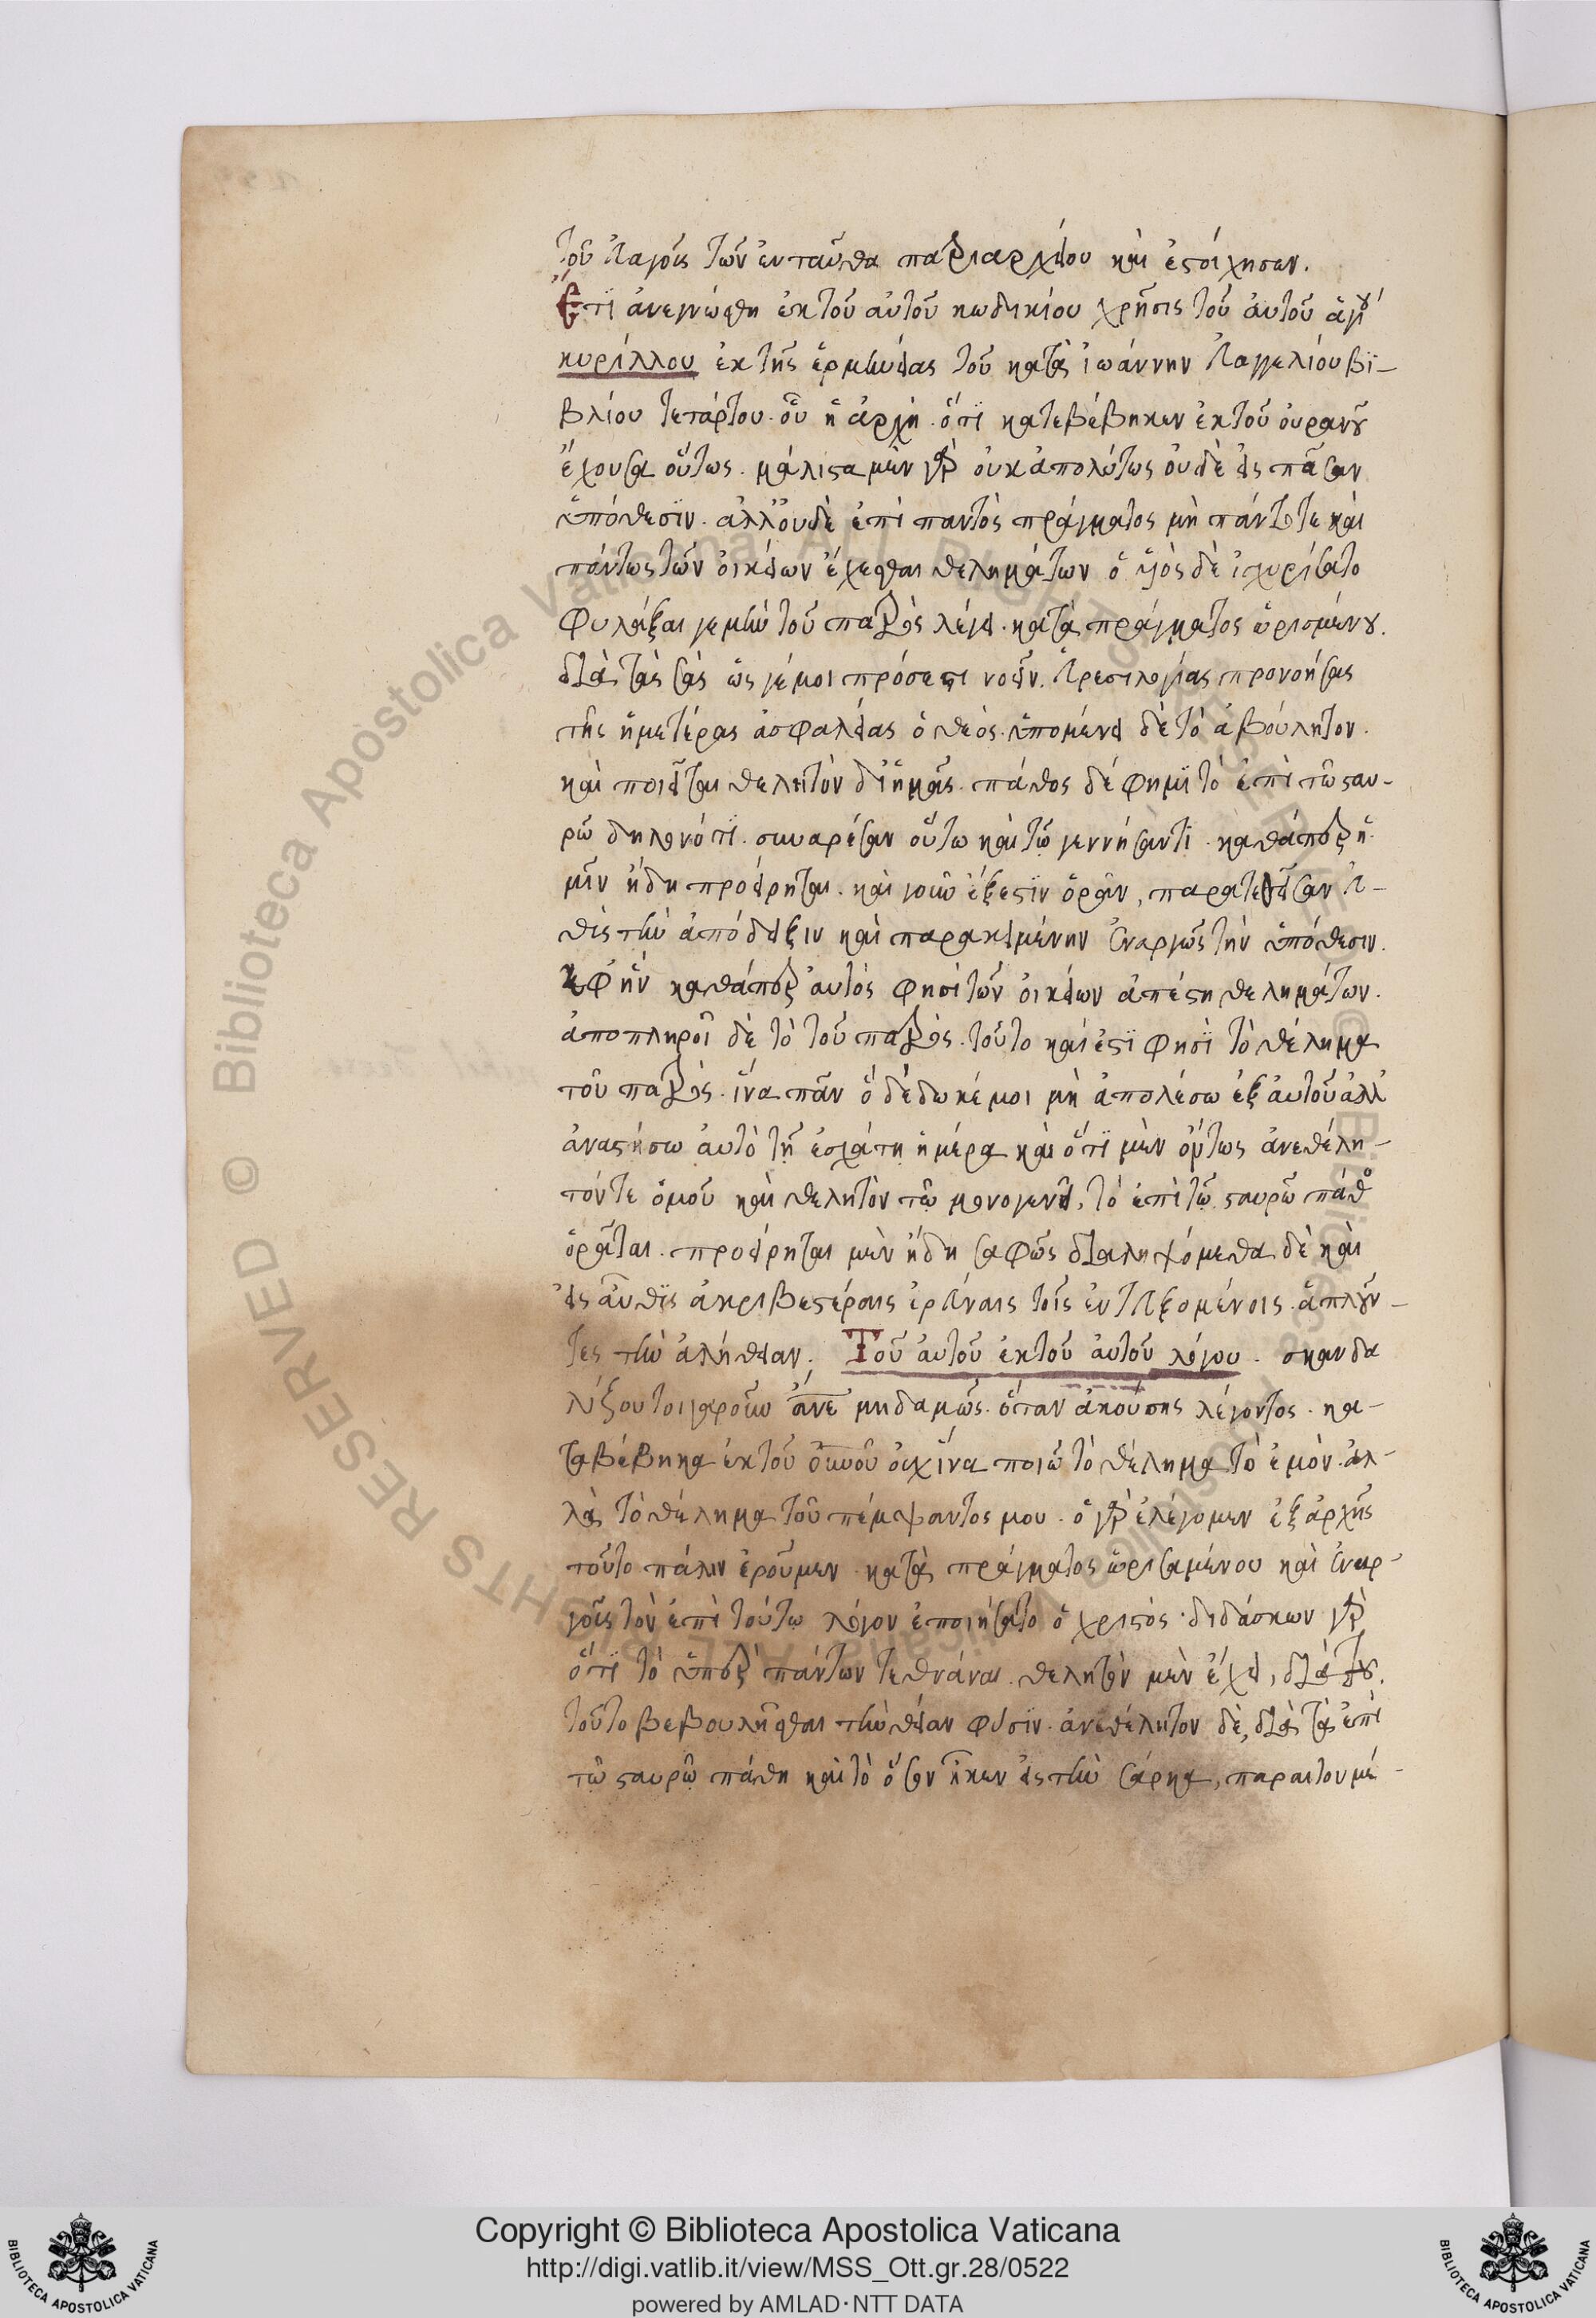 τοῦ εὐαγοῦς τῶν ἐνταῦθα πατριαρχείου καὶ ἐστοίχησαν.
Ἔτι ἀνεγνώσθη ἐκ τοῦ αὐτοῦ κωδικίου χρῆσις τοῦ αὐτοῦ ἁγίου
κυρίλλου ἐκ τῆς ἑρμηνείας τοῦ κατὰ ἰωάννην εὐαγγελίου βι-
βλίου τετάρτου. οὗ ἡ ἀρχή. ὅτι καταβέβηκεν ἐκ τοῦ οὐρανοῦ
ἔχουσα οὕτως. μάλιστα μὲν γὰρ οὐκ ἀπολύτως οὐδὲ εἰς πᾶσαν
ὑπόθεσιν. ἀλλ' οὐδὲ ἐπὶ παντὸς πράγματος μὴ πάντοτε καὶ
πάντως τῶν οἰκείων ἔχεσθαι θελημάτων ὁ υἱὸς δὲ ἰσχυρίσατο
φυλάξαι γε μὴν τοῦ πατρὸς λέγει. κατὰ πράγματος ὡρισμένου.
διὰ τὰς σὰς ὥς γέ μοι πρόσεστι νοεῖν. εὑρεσιλογίας προνοήσας
τῆς ἡμετέρας ἀσφαλείας ὁ θεός. ὑπομένει δὲ τὸ ἀβούλητον.
καὶ ποιεῖται θελητὸν δι' ἡμᾶς. πάθος δέ φημι τὸ ἐπὶ τῷ σταυ-
ρῷ δηλονότι. συναρέσαν οὕτω καὶ τῷ γεννήσαντι. καθάπερ ἡ-
μῖν ἤδη προείρηται. καὶ γοῦν ἔξεστιν ὁρᾶν, παρατεθεῖσαν εὐ-
θὺς τὴν ἀπόδειξιν καὶ παρακειμένην ἐναργῶς τὴν ὑπόθεσιν.
ἐφ' ἣν καθάπερ αὐτός φησι τῶν οἰκείων ἀπέστη θελημάτων.
ἀποπληροῖ δὲ τὸ τοῦ πατρός. τοῦτο καί ἐστι φησὶ τὸ θέλημα
τοῦ πατρός. ἵνα πᾶν ὃ δέδωκέ μοι μὴ ἀπολέσω ἐξ αὐτοῦ ἀλλ'
ἀναστήσω αὐτὸ τῇ ἐσχάτη ἡμέρα καὶ ὅτι μὲν ὄντως ἀνεθέλη-
τόν τε ὁμοῦ καὶ θελητὸν τῷ μονογενεῖ, τὸ ἐπὶ τῷ σταυρῷ πάθος
ὁρᾶται. προείρηται μὲν ἤδη σαφῶς διαληψόμεθα δὲ καὶ
εἰς αὖθις ἀκριβεστέραις ἐρεύναις τοῖς ἐντευξομένοις. ἁπλοῦν-
τες τὴν ἀλήθειαν. Τοῦ αὐτοῦ ἐκ τοῦ αὐτοῦ λόγου. σκανδα
λίζου τοιγαροῦν ἄνε μηδαμῶς. ὅταν ἀκούσης λέγοντος. κα-
ταβέβηκα ἐκ τοῦ οὐνοῦ οὐχ ἵνα ποιῶ τὸ θέλημα τὸ ἐμὸν. ἀλ-
λὰ τὸ θέλημα τοῦ πέμψαντος μου. ὃ γὰρ ἐλέγομεν ἐξ ἀρχῆς
τοῦτο πάλιν ἐροῦμεν. κατὰ πράγματος ὡρισαμένου καὶ ἐναρ-
γοῦς τὸν ἐπὶ τούτω λόγον ἐποιήσατο ὁ χριστός. διδάσκων γὰρ
ὅτι τὸ ὑπὲρ πάντων τεθνάναι. θελητὸν μὲν ἔχει, διὰ του.
τοῦτο βεβουλῆσθαι τὴν θείαν φύσιν. ἀνεθέλητον δὲ, διὰ τὰ ἐπὶ
τῷ σταυρῷ πάθη καὶ τὸ ὅσον ἧκεν εἰς τὴν σάρκα, παραιτουμέ-
Copyright © Biblioteca Apostolica Vaticana
http://digi.vatlib.it/view/MSS_Ott.gr.28/0522
powered by AMLAD·NTT DATA